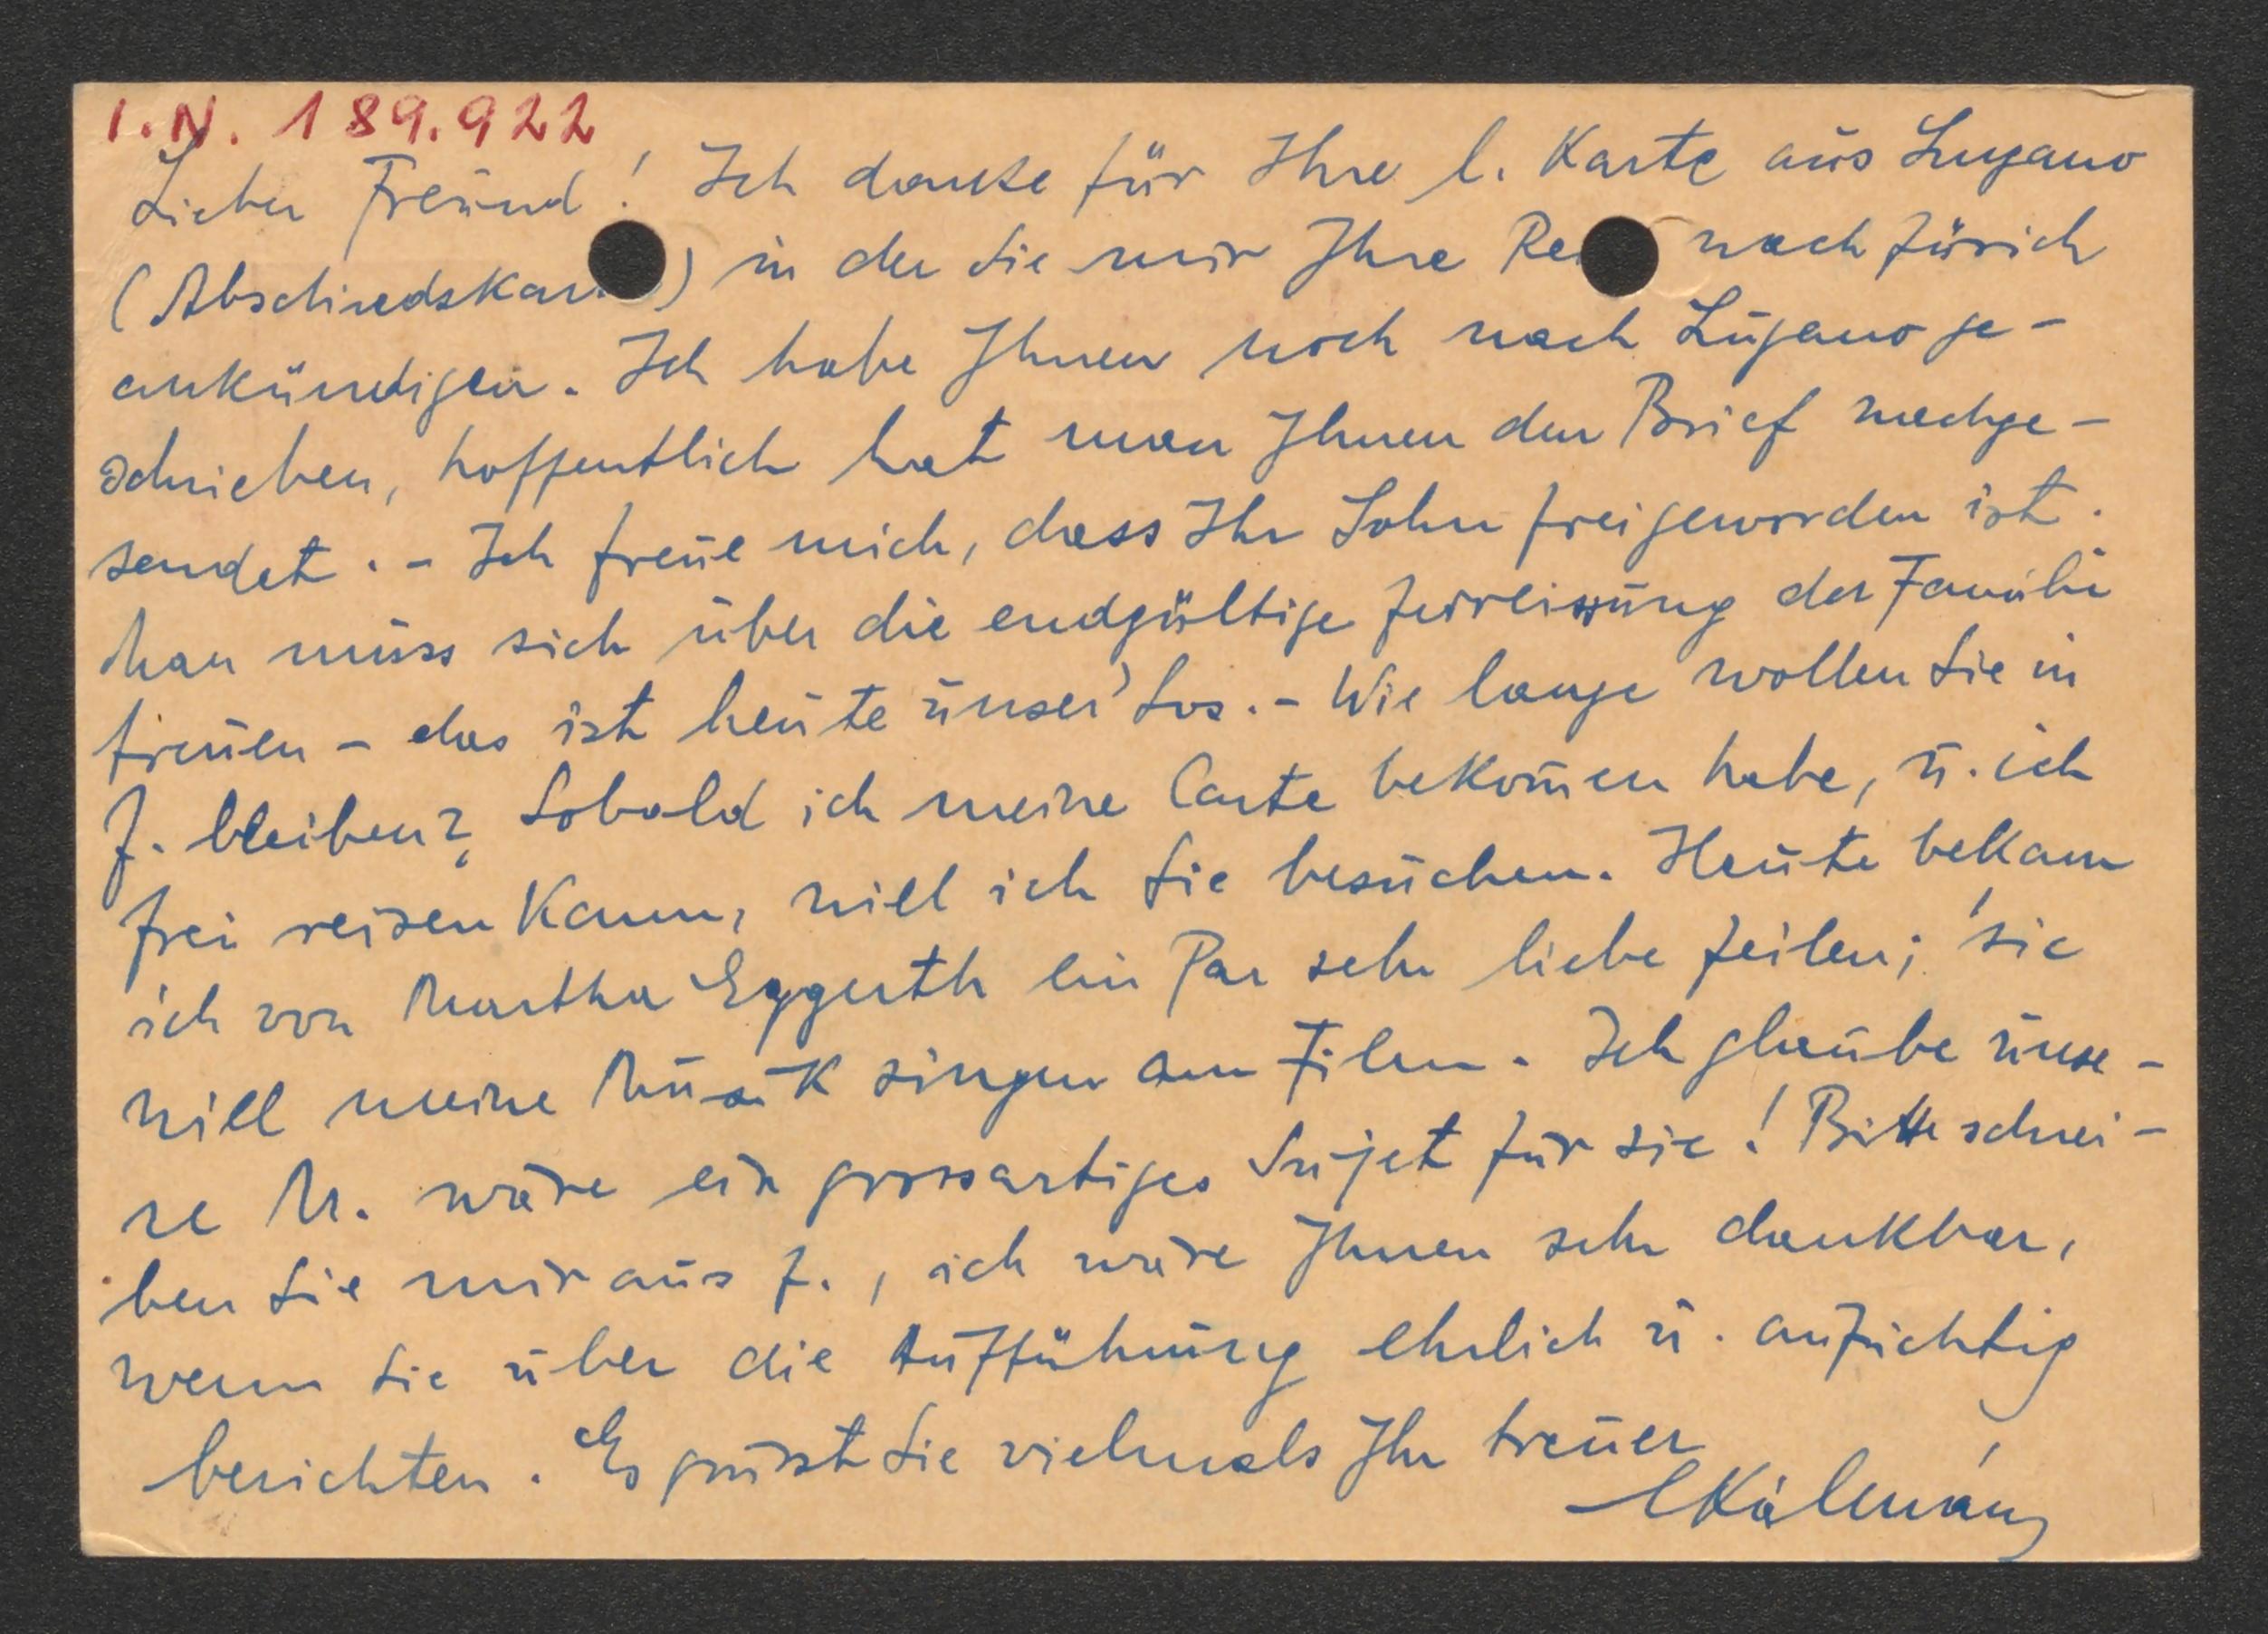 I.N. 189.922
Lieber Freund! Ich danke für Ihre l. Karte aus Lugano
(Abschiedskar ) in der Sie mir Ihre Rei nach Zürich
ankündigen. Ich habe Ihnen noch nach Lugano ge-
schrieben, hoffentlich hat man Ihnen den Brief nachge-
sendet. - Ich freue mich, dass Ihr Sohn freigeworden ist.
Man muss sich über die endgültige Zerreissung der Familie
freuen - das ist heute unser Los. - Wie lange wollen Sie in
Z. bleiben? Sobald ich meine Carte bekom̅en habe, u. ich
frei reisen kann, will ich Sie besuchen. Heute bekam
ich von Martha Eggerth ein Par sehr liebe Zeilen; sie
will meine Musik singen am Film. Ich glaube unse-
re M. wäre ein grossartiges Sujet für sie! Bitte schrei-
ben Sie mir aus Z., ich wäre Ihnen sehr dankbar,
wenn Sie über die Aufführung ehrlich u. aufrichtig
berichten. Es grüsst Sie vielmals Ihr treuer
EKálmán